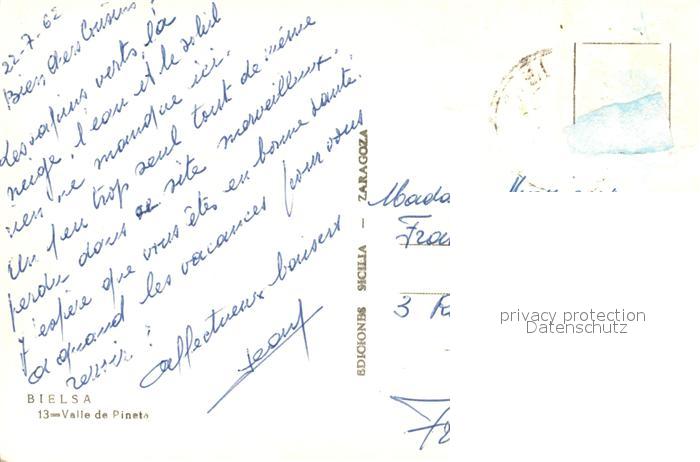 22-7-62
Bien des Cousins !
Les sapins verts, la
neige, l'eau et le soleil
rien ne manque ici.
Un peu trop seul tout de même
perdu dans ce site merveilleux.
J'espère que vous êtes en bonne santé.
à quand les vacances pour vous
revoir ?
affectueux baisers
Jean
BIELSA
13=Valle de Pineta
EDICIONES SICILIA - ZARAGOZA
Mada
Fra
3 R
Fr
privacy protection
Datenschutz